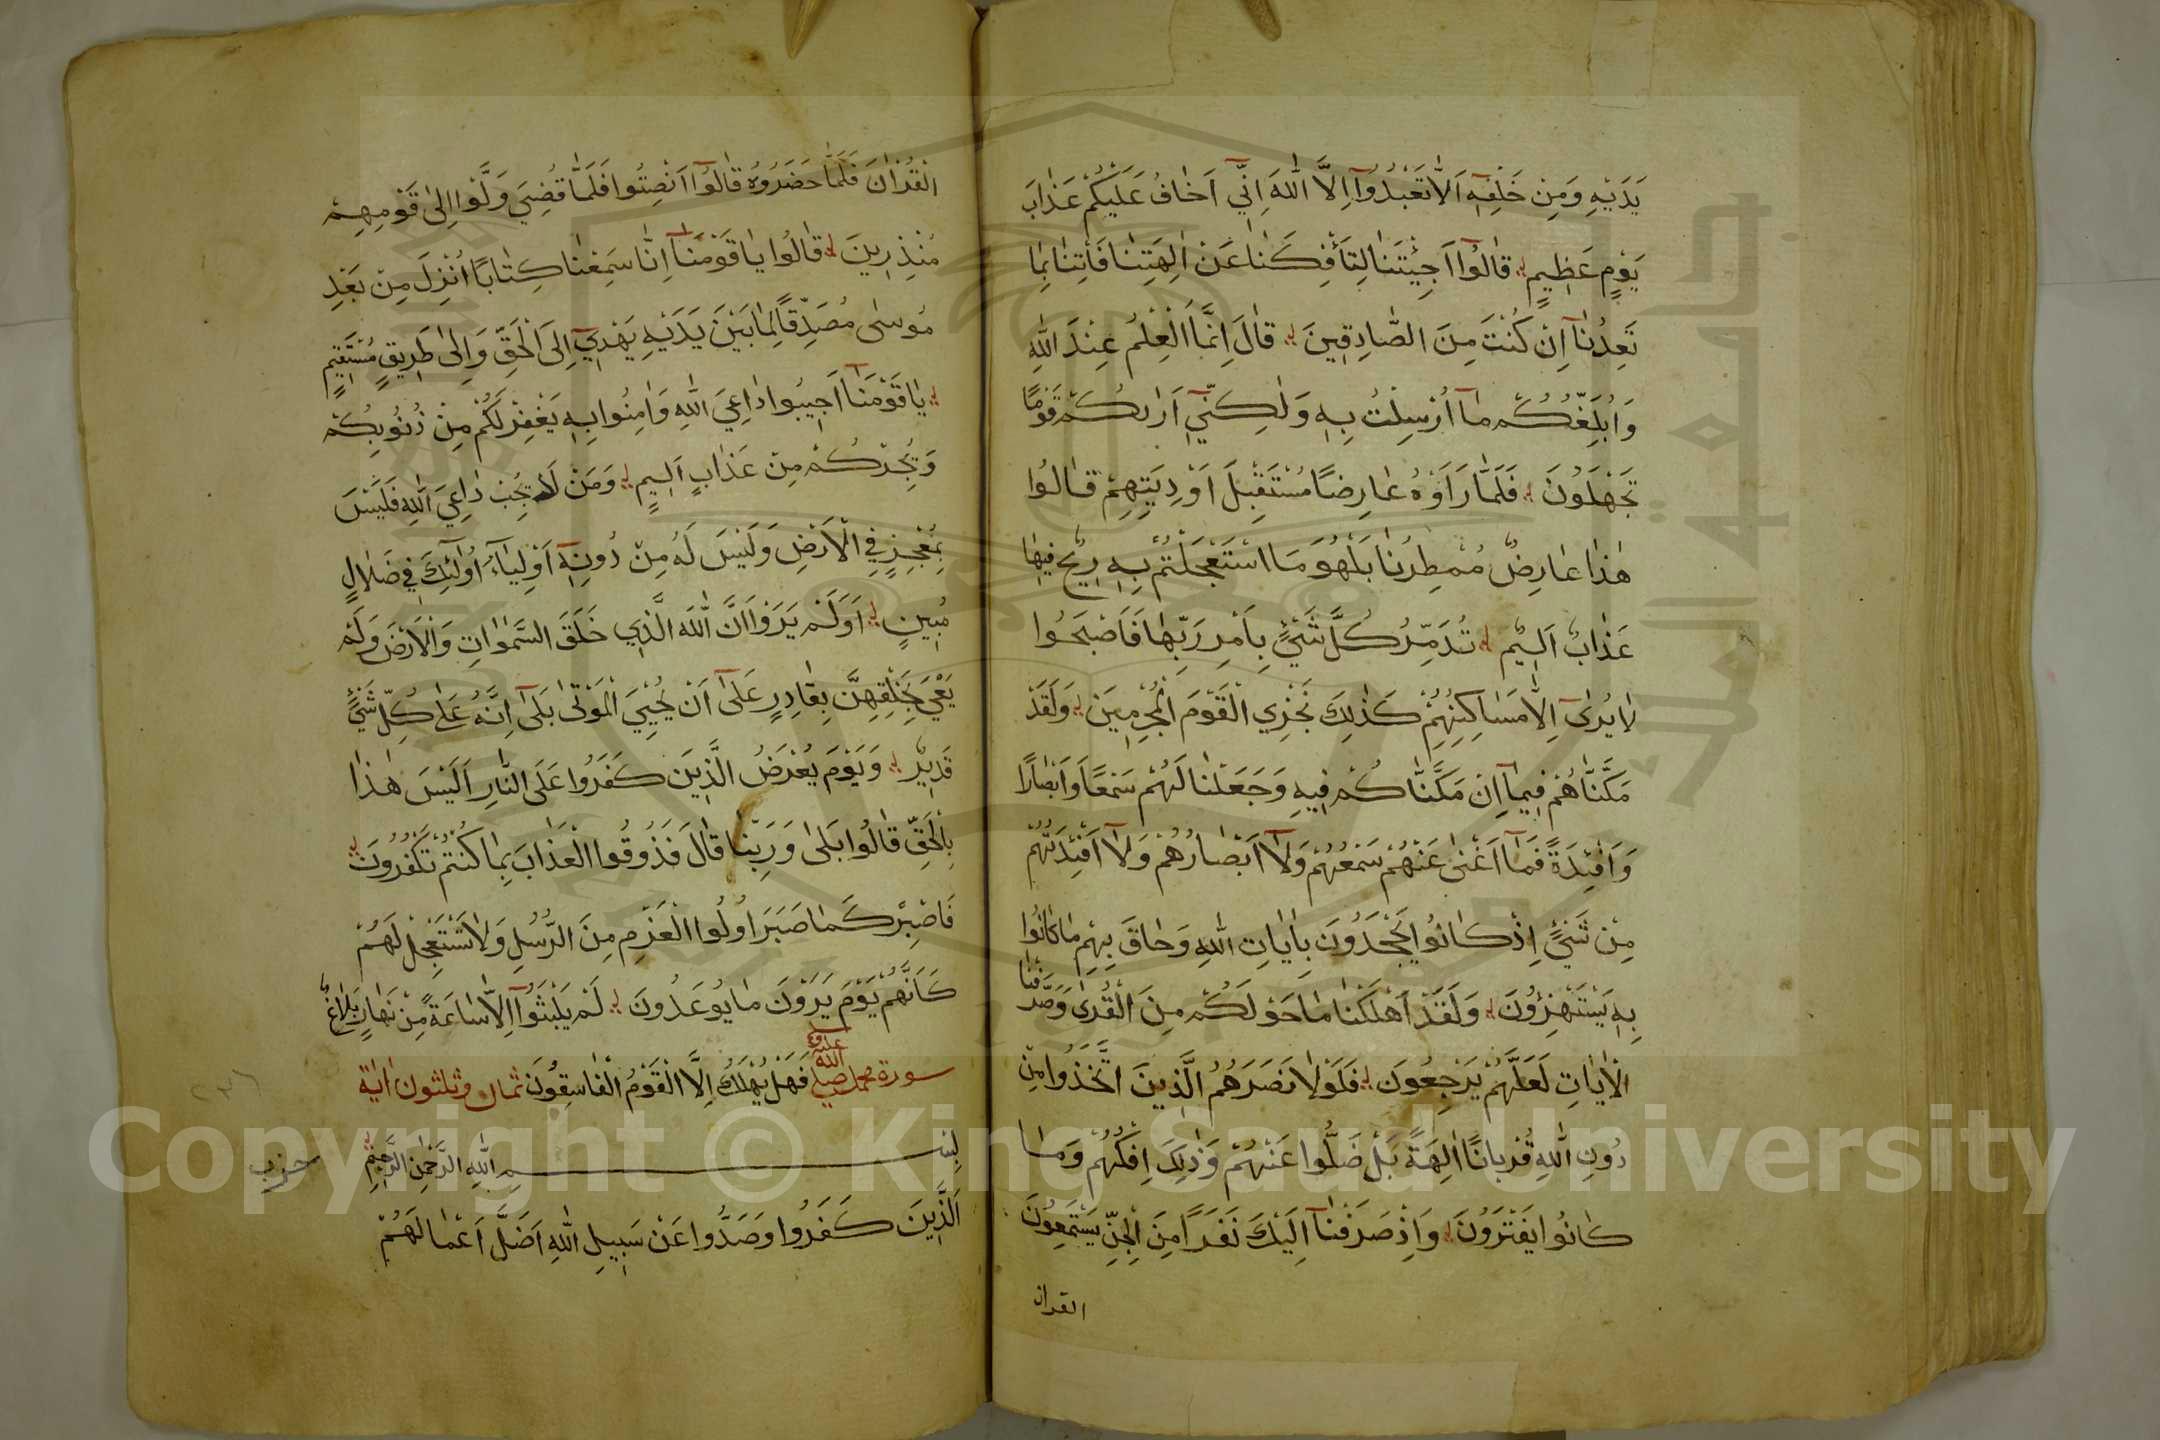 يَدَيْهِ وَمِنْ خَلْفِهِٓ اَلَّا تَعْبُدُوٓا اِلَّا اللّٰهَ اِنِّيٓ اَخَافُ عَلَيْكُمْ عَذَابَ
يَوْمٍ عَظِيمٍ قَالُوٓا اَجِئْتَنَا لِتَأْفِكَنَا عَنْ اٰلِهَتِنَا فَأْتِنَا بِمَا
تَعِدُنَآ اِنْ كُنْتَ مِنَ الصَّادِقِينَ قَالَ اِنَّمَا الْعِلْمُ عِنْدَ اللّٰهِ
وَاُبَلِّغُكُمْ مَآ اُرْسِلْتُ بِهِ وَلٰكِنِّيٓ اَرٰيكُمْ قَوْمًا
تَجْهَلُونَ فَلَمَّا رَاَوْهُ عَارِضًا مُسْتَقْبِلَ اَوْدِيَتِهِمْ قَالُوا
هٰذَا عَارِضٌ مُمْطِرُنَا بَلْ هُوَ مَا اسْتَعْجَلْتُمْ بِهِ رِيحٌ فِيهَا
عَذَابٌ اَلِيمٌ تُدَمِّرُ كُلَّ شَيْءٍ بِاَمْرِ رَبِّهَا فَاَصْبَحُوا
لَا يُرٰىٓ اِلَّا مَسَاكِنُهُمْ كَذٰلِكَ نَجْزِي الْقَوْمَ الْمُجْرِمِينَ وَلَقَدْ
مَكَّنَّاهُمْ فِيمَآ اِنْ مَكَّنَّاكُمْ فِيهِ وَجَعَلْنَا لَهُمْ سَمْعًا وَاَبْصَارًا
وَاَفْئِدَةً فَمَآ اَغْنٰى عَنْهُمْ سَمْعُهُمْ وَلَآ اَبْصَارُهُمْ وَلَآ اَفْئِدَتُهُمْ
مِنْ شَيْءٍ اِذْ كَانُوا يَجْحَدُونَ بِاٰيَاتِ اللّٰهِ وَحَاقَ بِهِمْ مَا كَانُوا
بِهِ يَسْتَهْزِؤُنَ وَلَقَدْ اَهْلَكْنَا مَا حَوْلَكُمْ مِنَ الْقُرٰى وَصَرَّفْنَا
الْاٰيَاتِ لَعَلَّهُمْ يَرْجِعُونَ فَلَوْلَا نَصَرَهُمُ الَّذِينَ اتَّخَذُوا مِنْ
دُونِ اللّٰهِ قُرْبَانًا اٰلِهَةً بَلْ ضَلُّوا عَنْهُمْ وَذٰلِكَ اِفْكُهُمْ وَمَا
كَانُوا يَفْتَرُونَ وَاِذْ صَرَفْنَآ اِلَيْكَ نَفَرًا مِنَ الْجِنِّ يَسْتَمِعُونَ
القران
الْقُرْاٰنَ فَلَمَّا حَضَرُوهُ قَالُوٓا اَنْصِتُوا فَلَمَّا قُضِيَ وَلَّوْا اِلٰى قَوْمِهِمْ
مُنْذِرِينَ قَالُوا يَا قَوْمَنَآ اِنَّا سَمِعْنَا كِتَابًا اُنْزِلَ مِنْ بَعْدِ
مُوسٰى مُصَدِّقًا لِمَا بَيْنَ يَدَيْهِ يَهْدِيٓ اِلَى الْحَقِّ وَاِلٰى طَرِيقٍ مُسْتَقِيمٍ
يَا قَوْمَنَآ اَجِيبُوا دَاعِيَ اللّٰهِ وَاٰمِنُوا بِهِ يَغْفِرْ لَكُمْ مِنْ ذُنُوبِكُمْ
وَيُجِرْكُمْ مِنْ عَذَابٍ اَلِيمٍ وَمَنْ لَا يُجِبْ دَاعِيَ اللّٰهِ فَلَيْسَ
بِمُعْجِزٍ فِي الْاَرْضِ وَلَيْسَ لَهُ مِنْ دُونِهِٓ اَوْلِيَآءُ اُولٰٓئِكَ فِي ضَلَالٍ
مُبِينٍ اَوَلَمْ يَرَوْا اَنَّ اللّٰهَ الَّذِي خَلَقَ السَّمٰوَاتِ وَالْاَرْضَ وَلَمْ
يَعْيَ بِخَلْقِهِنَّ بِقَادِرٍ عَلٰٓى اَنْ يُحْيِيَ الْمَوْتٰى بَلٰٓى اِنَّهُ عَلٰى كُلِّ شَيْءٍ
قَدِيرٌ وَيَوْمَ يُعْرَضُ الَّذِينَ كَفَرُوا عَلَى النَّارِ اَلَيْسَ هٰذَا
بِالْحَقِّ قَالُوا بَلٰى وَرَبِّنَا قَالَ فَذُوقُوا الْعَذَابَ بِمَا كُنْتُمْ تَكْفُرُونَ
فَاصْبِرْ كَمَا صَبَرَ اُولُوا الْعَزْمِ مِنَ الرُّسُلِ وَلَا تَسْتَعْجِلْ لَهُمْ
كَاَنَّهُمْ يَوْمَ يَرَوْنَ مَا يُوعَدُونَ لَمْ يَلْبَثُوٓا اِلَّا سَاعَةً مِنْ نَهَارٍ بَلَاغٌ
سورة محمد صلى الله عليه وسلم فَهَلْ يُهْلَكُ اِلَّا الْقَوْمُ الْفَاسِقُونَ ثمان وثلثون اٰية
بِسْمِ اللّٰهِ الرَّحْمٰنِ الرَّحِيمِ
حزب
اَلَّذِينَ كَفَرُوا وَصَدُّوا عَنْ سَبِيلِ اللّٰهِ اَضَلَّ اَعْمَالَهُمْ
Copyright © King Saud University